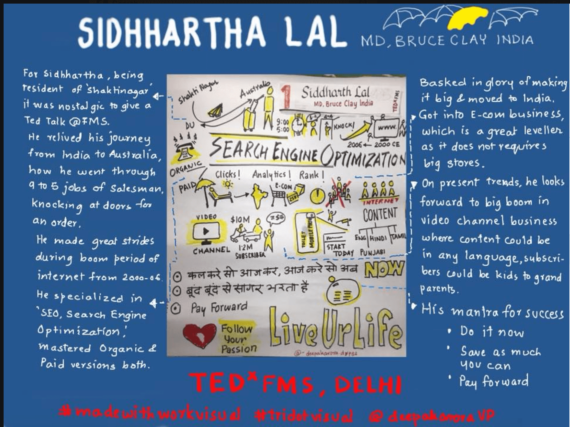 SIDHHARTHA LAL MD, BRUCE CLAY INDIA
For Sidhhartha, being
resident of 'Shaktinagar'
it was nostalgic to give a
Ted Talk @FMS.
He relived his journey
from India to Australia,
how we went through
9 to 5 jobs of Salesman,
Knocking at doors for
an order.
He made great strides
during boom period of
internet from 2000-06
He specialized in
'SEO, Search Engine
Optimization,'
mastered Organic &
Paid versions both.
Shakti Nagar
Australia
1 Siddharth Lal
MD. Bruce Clay India
DU
9:00
5:00
KNOCK!
WWW
2006 2000 CE
SEARCH ENGINE OPTIMIZATION
ORGANIC
PAID
Clicks! Analytics! Rank!
E-COM
INTERNET
VIDEO
CHANNEL
$10M
12M
SUBSCRIBER
START
TODAY
CONTENT
ENG HINDI TAMIL
PUNJABI
कल करे सो आज कर, आज करे सो अब NOW
बूंद बूंद से सागर भरता है
Pay Forward
Follow
Your
Passion
Live Ur Life
Basked in glory of making
it big & moved to India.
Got into E-com business,
which is a great leveller
as it does not requires
big stores.
On present trends, he looks
forward to big boom in
video channel business
where content could be
in any language, subscri-
bers could be kids to grand
parents.
His mantra for success
• Do it now
• Save as much
you can
• Pay forward
TEDxFMS, DELHI
#madewithworkvisual #tridotvisual @deepakaroraVP